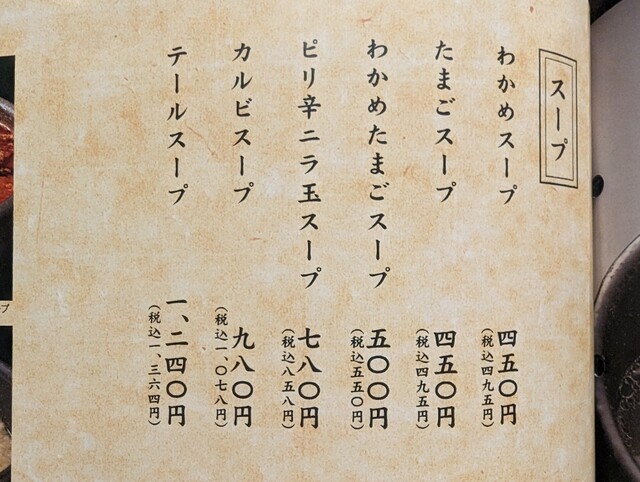 スープ
わかめスープ
四五〇円
(税込四九五円)
たまごスープ
四五〇円
(税込四九五円)
わかめたまごスープ
五〇〇円
(税込五五〇円)
ピリ辛ニラ玉スープ
七八〇円
(税込八五八円)
カルビスープ
九八〇円
(税込一、〇七八円)
テールスープ
一、二四〇円
(税込一、三六四円)